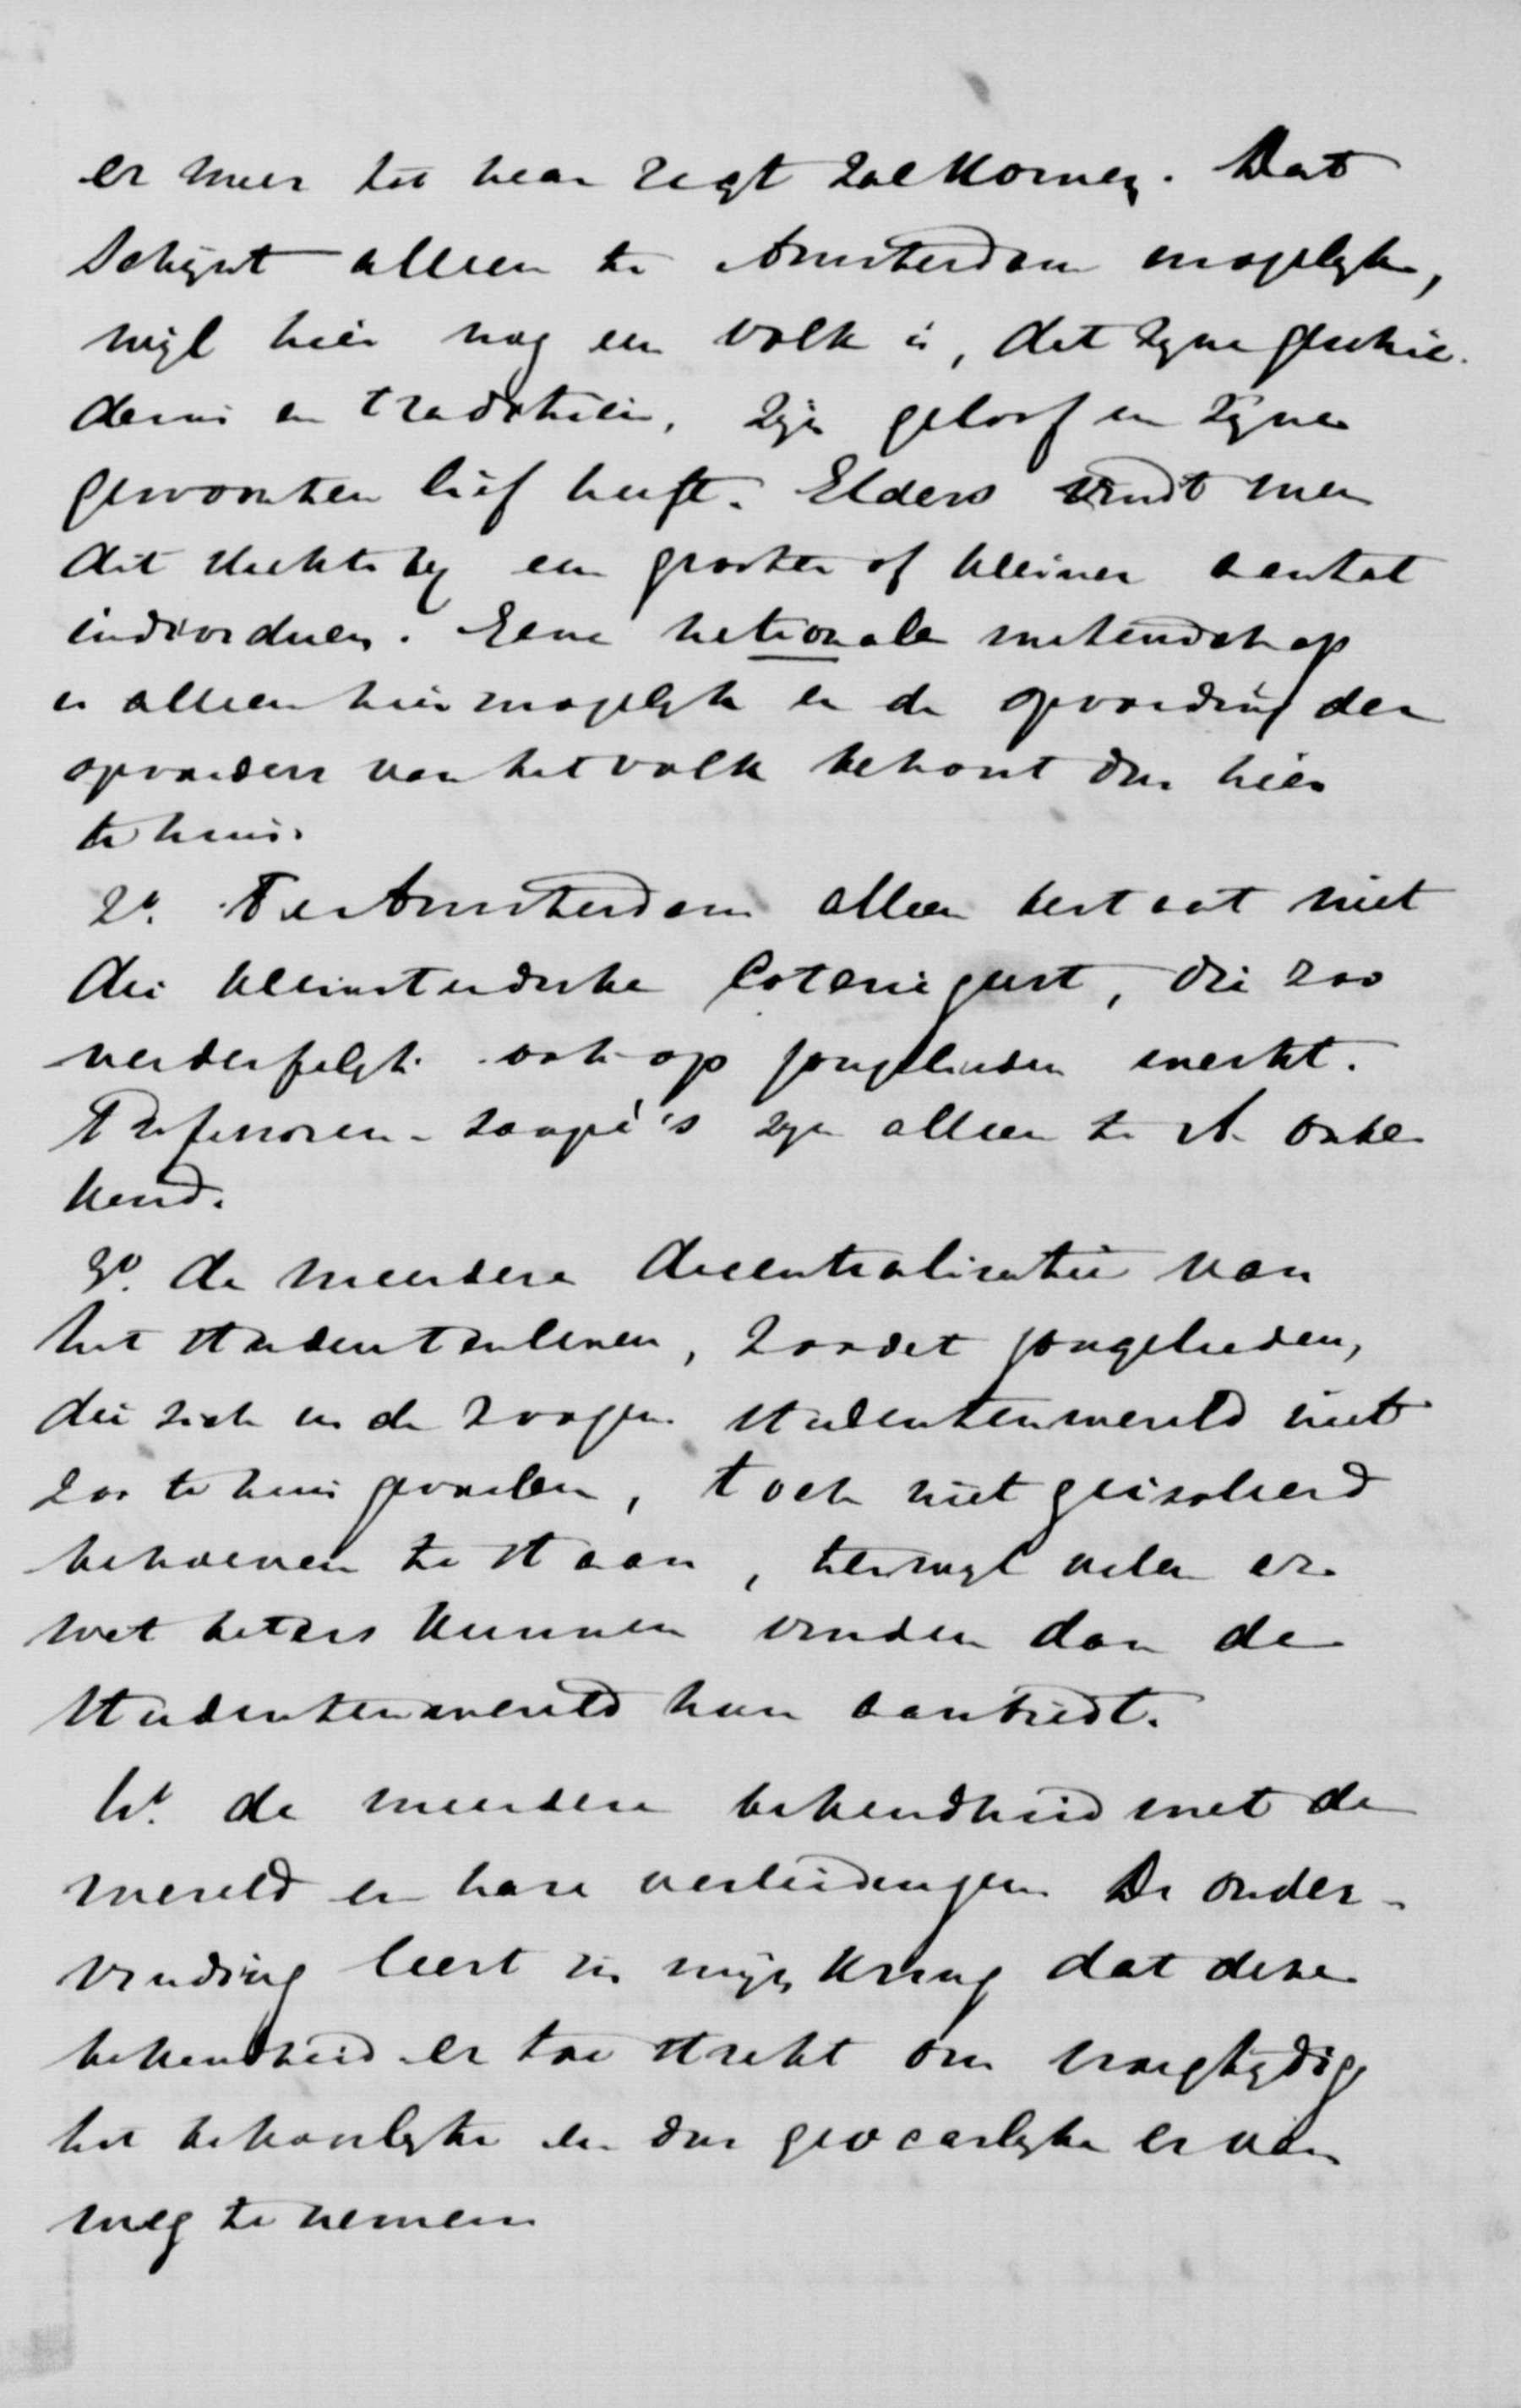 er meer tot haar regt zal komen. Dat
schijnt alleen te Amsterdam mogelyk,
wijl hier nog een volk is, dat zyne geschie-
denis en traditiën, zijn geloof en zyne
gewoonten lief heeft. Elders vindt men
dit slechts by een grooter of kleiner aantal
individuen. Eene nationale wetenschap
is alleen hier mogelyk en de opvoeding der
opvoeders van het volk behoort dus hier
te huis.
2o. Te Amsterdam alleen bestaat niet
die kleinsteedsche Coteriegeest, die zoo
verderfelyk ook op jongelieden werkt.
Professoren-soupé's zyn alleen te A. onbe
kend.
3o. de meerdere decentralisatie van
het studentenleven, zoodat jongelieden,
die zich in de zoogen. studentenwereld niet
zoo te huis gevoelen, toch niet geisoleerd
behoeven te staan, terwyl velen er
wat beters kunnen vinden dan de
studentenwereld hun aanbiedt.
4o. de meerdere bekendheid met de
wereld en hare verleidingen. De onder-
vinding leert in mijn kring dat deze
bekendheid er toe strekt om vroegtydig
het bekoorlyke en dus gevaarlyke er van
weg te nemen